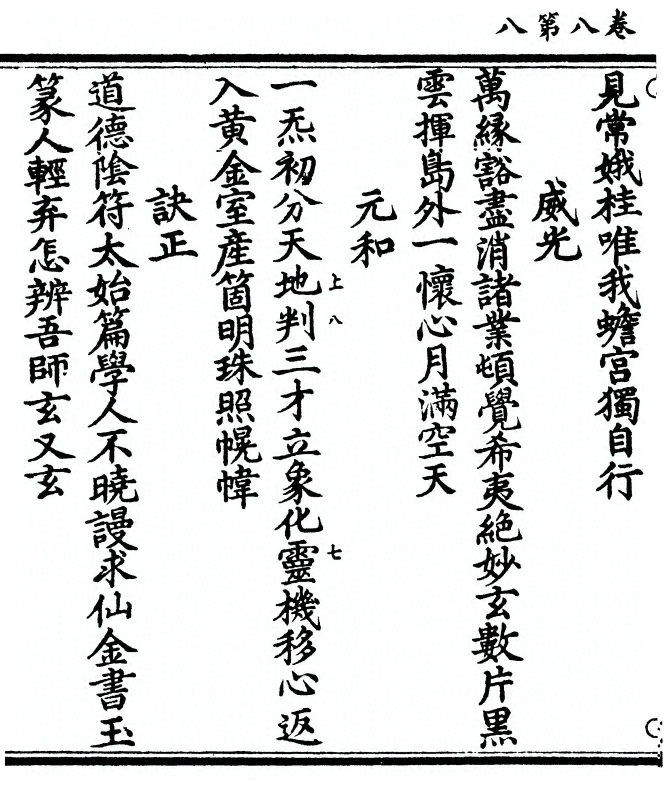 卷八第八
見常娥桂唯我蟾宮獨自行
威光
萬緣豁盡消諸業頓覺希夷絕妙玄數片黑
雲揮島外一懷心月滿空天
元和
一炁初分天地判三才立象化靈機移心返
上八
七
入黃金室產箇明珠照幌幃
訣正
道德陰符太始篇學人不曉謾求仙金書玉
篆人輕弃怎辨吾師玄又玄